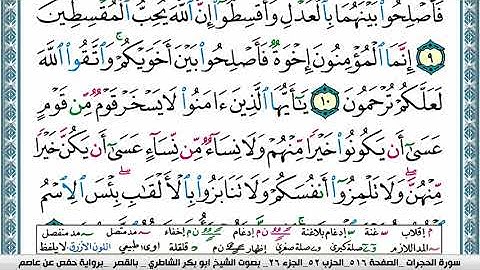 فَأَصْلِحُوا۟ بَيْنَهُمَا بِٱلْعَدْلِ وَأَقْسِطُوٓا۟ إِنَّ ٱللَّهَ يُحِبُّ ٱلْمُقْسِطِينَ
٩ إِنَّمَا ٱلْمُؤْمِنُونَ إِخْوَةٌ فَأَصْلِحُوا۟ بَيْنَ أَخَوَيْكُمْ ۚ وَٱتَّقُوا۟ ٱللَّهَ
لَعَلَّكُمْ تُرْحَمُونَ ١٠ يَـٰٓأَيُّهَا ٱلَّذِينَ ءَامَنُوا۟ لَا يَسْخَرْ قَوْمٌ مِّن قَوْمٍ
عَسَىٰٓ أَن يَكُونُوا۟ خَيْرًا مِّنْهُمْ وَلَا نِسَآءٌ مِّن نِّسَآءٍ عَسَىٰٓ أَن يَكُنَّ خَيْرًا
مِّنْهُنَّ ۖ وَلَا تَلْمِزُوٓا۟ أَنفُسَكُمْ وَلَا تَنَابَزُوا۟ بِٱلْأَلْقَـٰبِ ۖ بِئْسَ ٱلِٱسْمُ
م إقلاب غنة إدغام بلاغنة إدغام إخفاء مد متصل مد منفصل
المد اللازم صلة كبرى صلة صغرى إظهار قلقلة طبيعي اللون الأزرق لا يلفظ
سورة الحجرات . الصفحة ٥١٦ . الحزب ٥٢ . الجزء ٢٦ . بصوت الشيخ ابو بكر الشاطري . بالقصر . برواية حفص عن عاصم